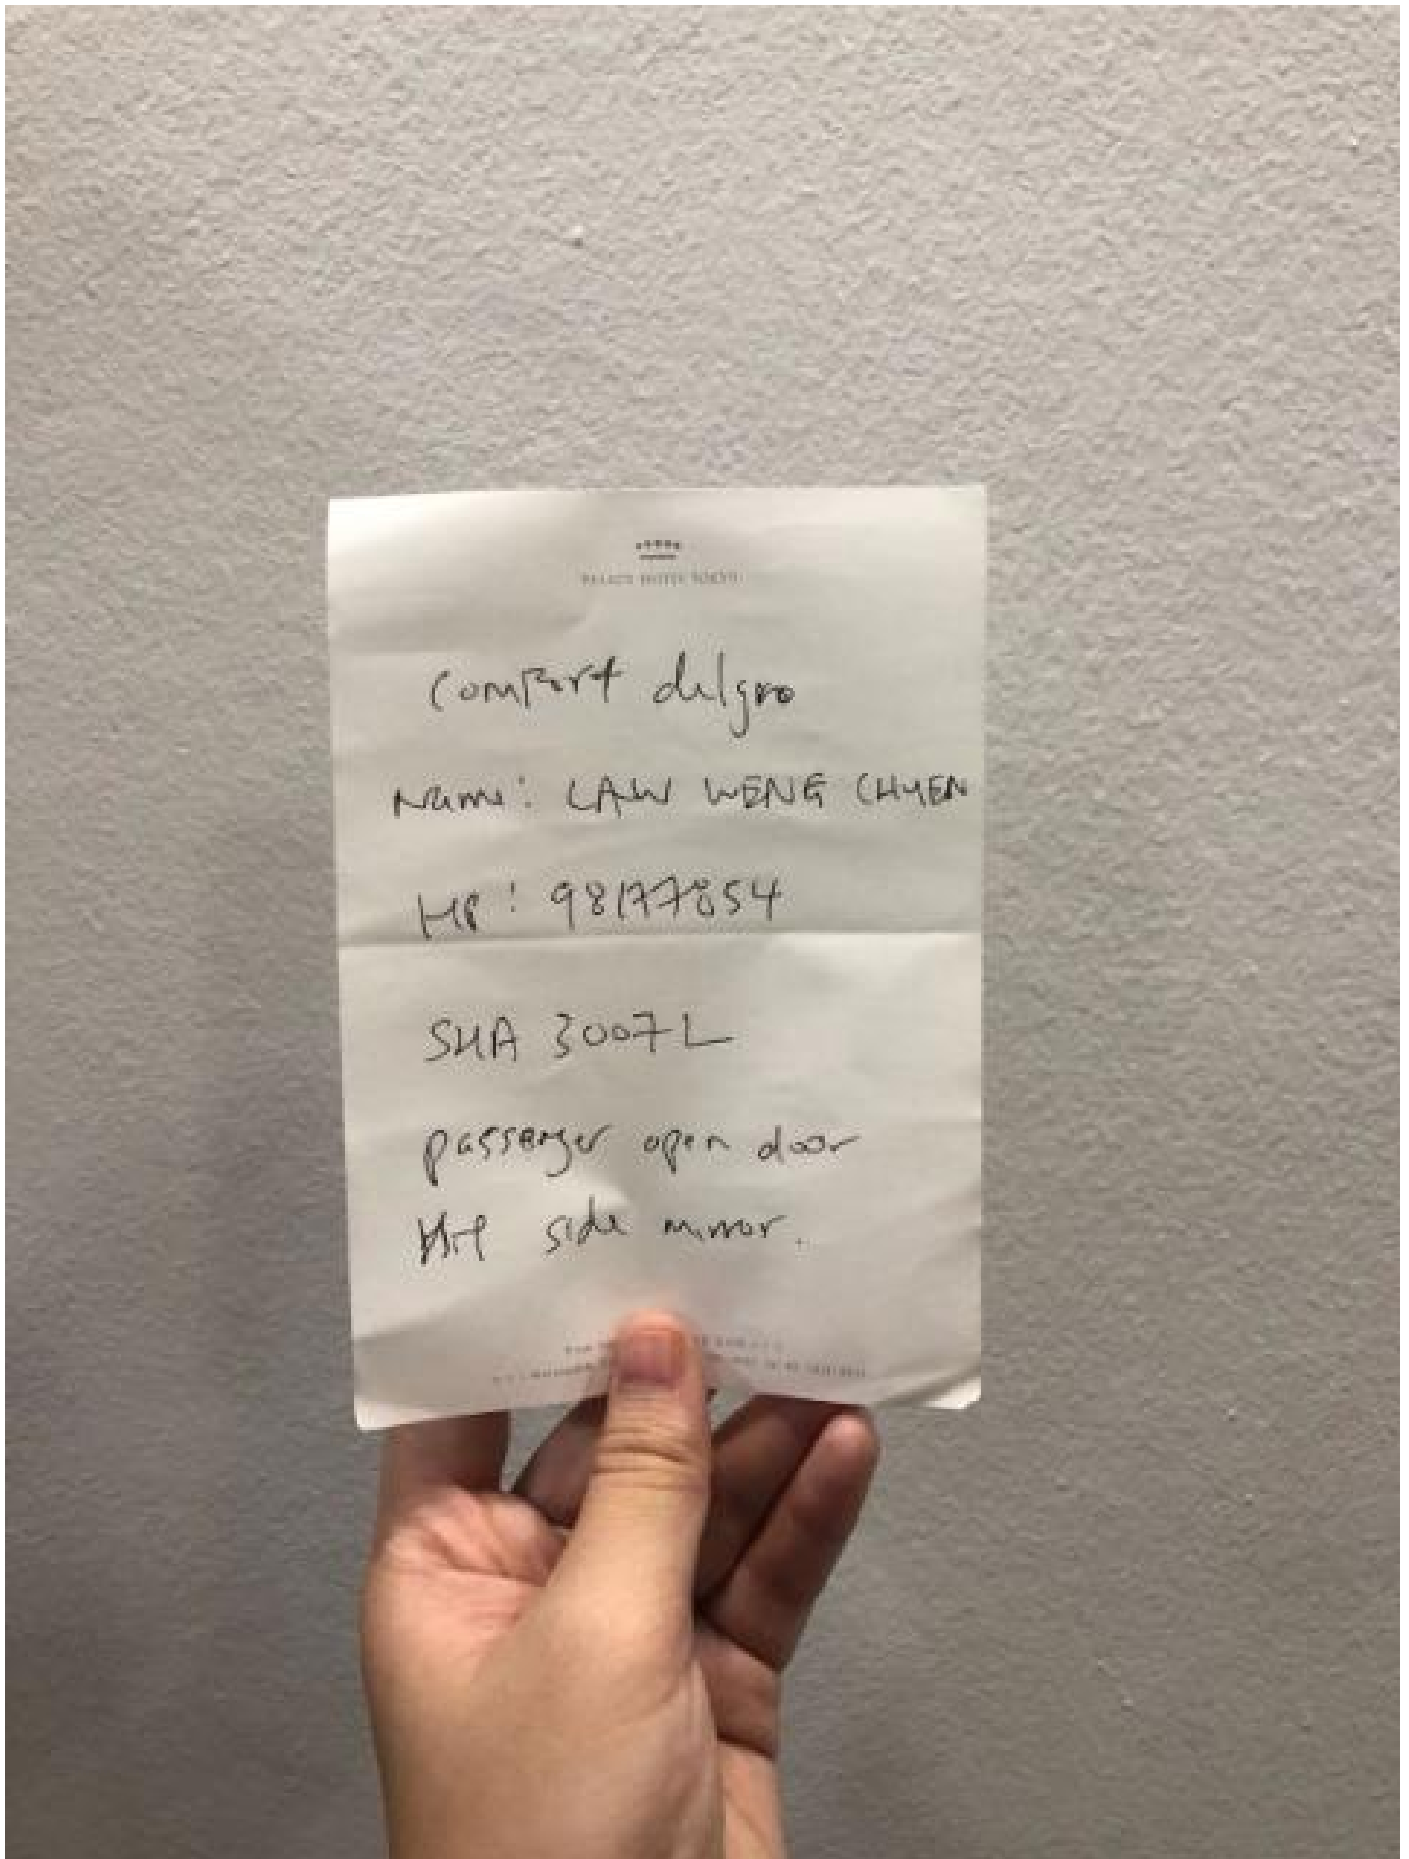 PALACE HOTEL TOKYO
Comfort delgro
Name: LAW WENG CHUEN
HP: 98177854
SHA 3007L
passenger open door
Hit side mirror.